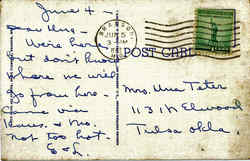 June 4 -
Dear Una -
We're here
but don't know
where we will
go from here.
Came via
& Mo.
not too hot.
E & L.
JUN 5
POST CARD
Mrs. Una Tater
1131 N Elwood
Tulsa Okla.